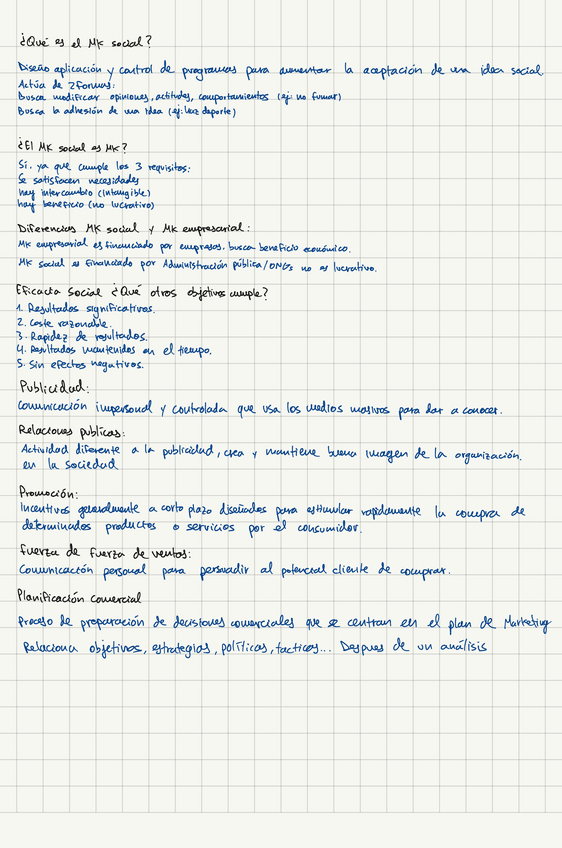 ¿Qué es el MK social?
Diseño aplicación y control de programas para aumentar la aceptación de una idea social.
Actúa de 2 formas:
Busca modificar opiniones, actitudes, comportamientos (ej: no fumar)
Busca la adhesión de una idea (ej: hacer deporte)
¿El MK social es MK?
Sí, ya que cumple los 3 requisitos:
Se satisfacen necesidades
hay intercambio (intangible)
hay beneficio (no lucrativo)
Diferencias MK social y MK empresarial:
MK empresarial es financiado por empresas, busca beneficio económico.
MK social es financiado por Administración pública/ONGs no es lucrativo.
Eficacia Social ¿Qué otros objetivos cumple?
1. Resultados significativos.
2. Coste razonable.
3. Rapidez de resultados.
4. Resultados mantenidos en el tiempo.
5. Sin efectos negativos.
Publicidad:
Comunicación impersonal y controlada que usa los medios masivos para dar a conocer.
Relaciones publicas:
Actividad diferente a la publicidad, crea y mantiene buena imagen de la organización.
en la sociedad
Promoción:
Incentivos generalmente a corto plazo diseñados para estimular rapidamente la compra de
determinados productos o servicios por el consumidor.
Fuerza de fuerza de ventas:
Comunicación personal para persuadir al potencial cliente de comprar.
Planificación comercial
Proceso de preparación de decisiones comerciales que se centran en el plan de Marketing
Relaciona objetivos, estrategias, políticas, tacticas... Despues de un análisis